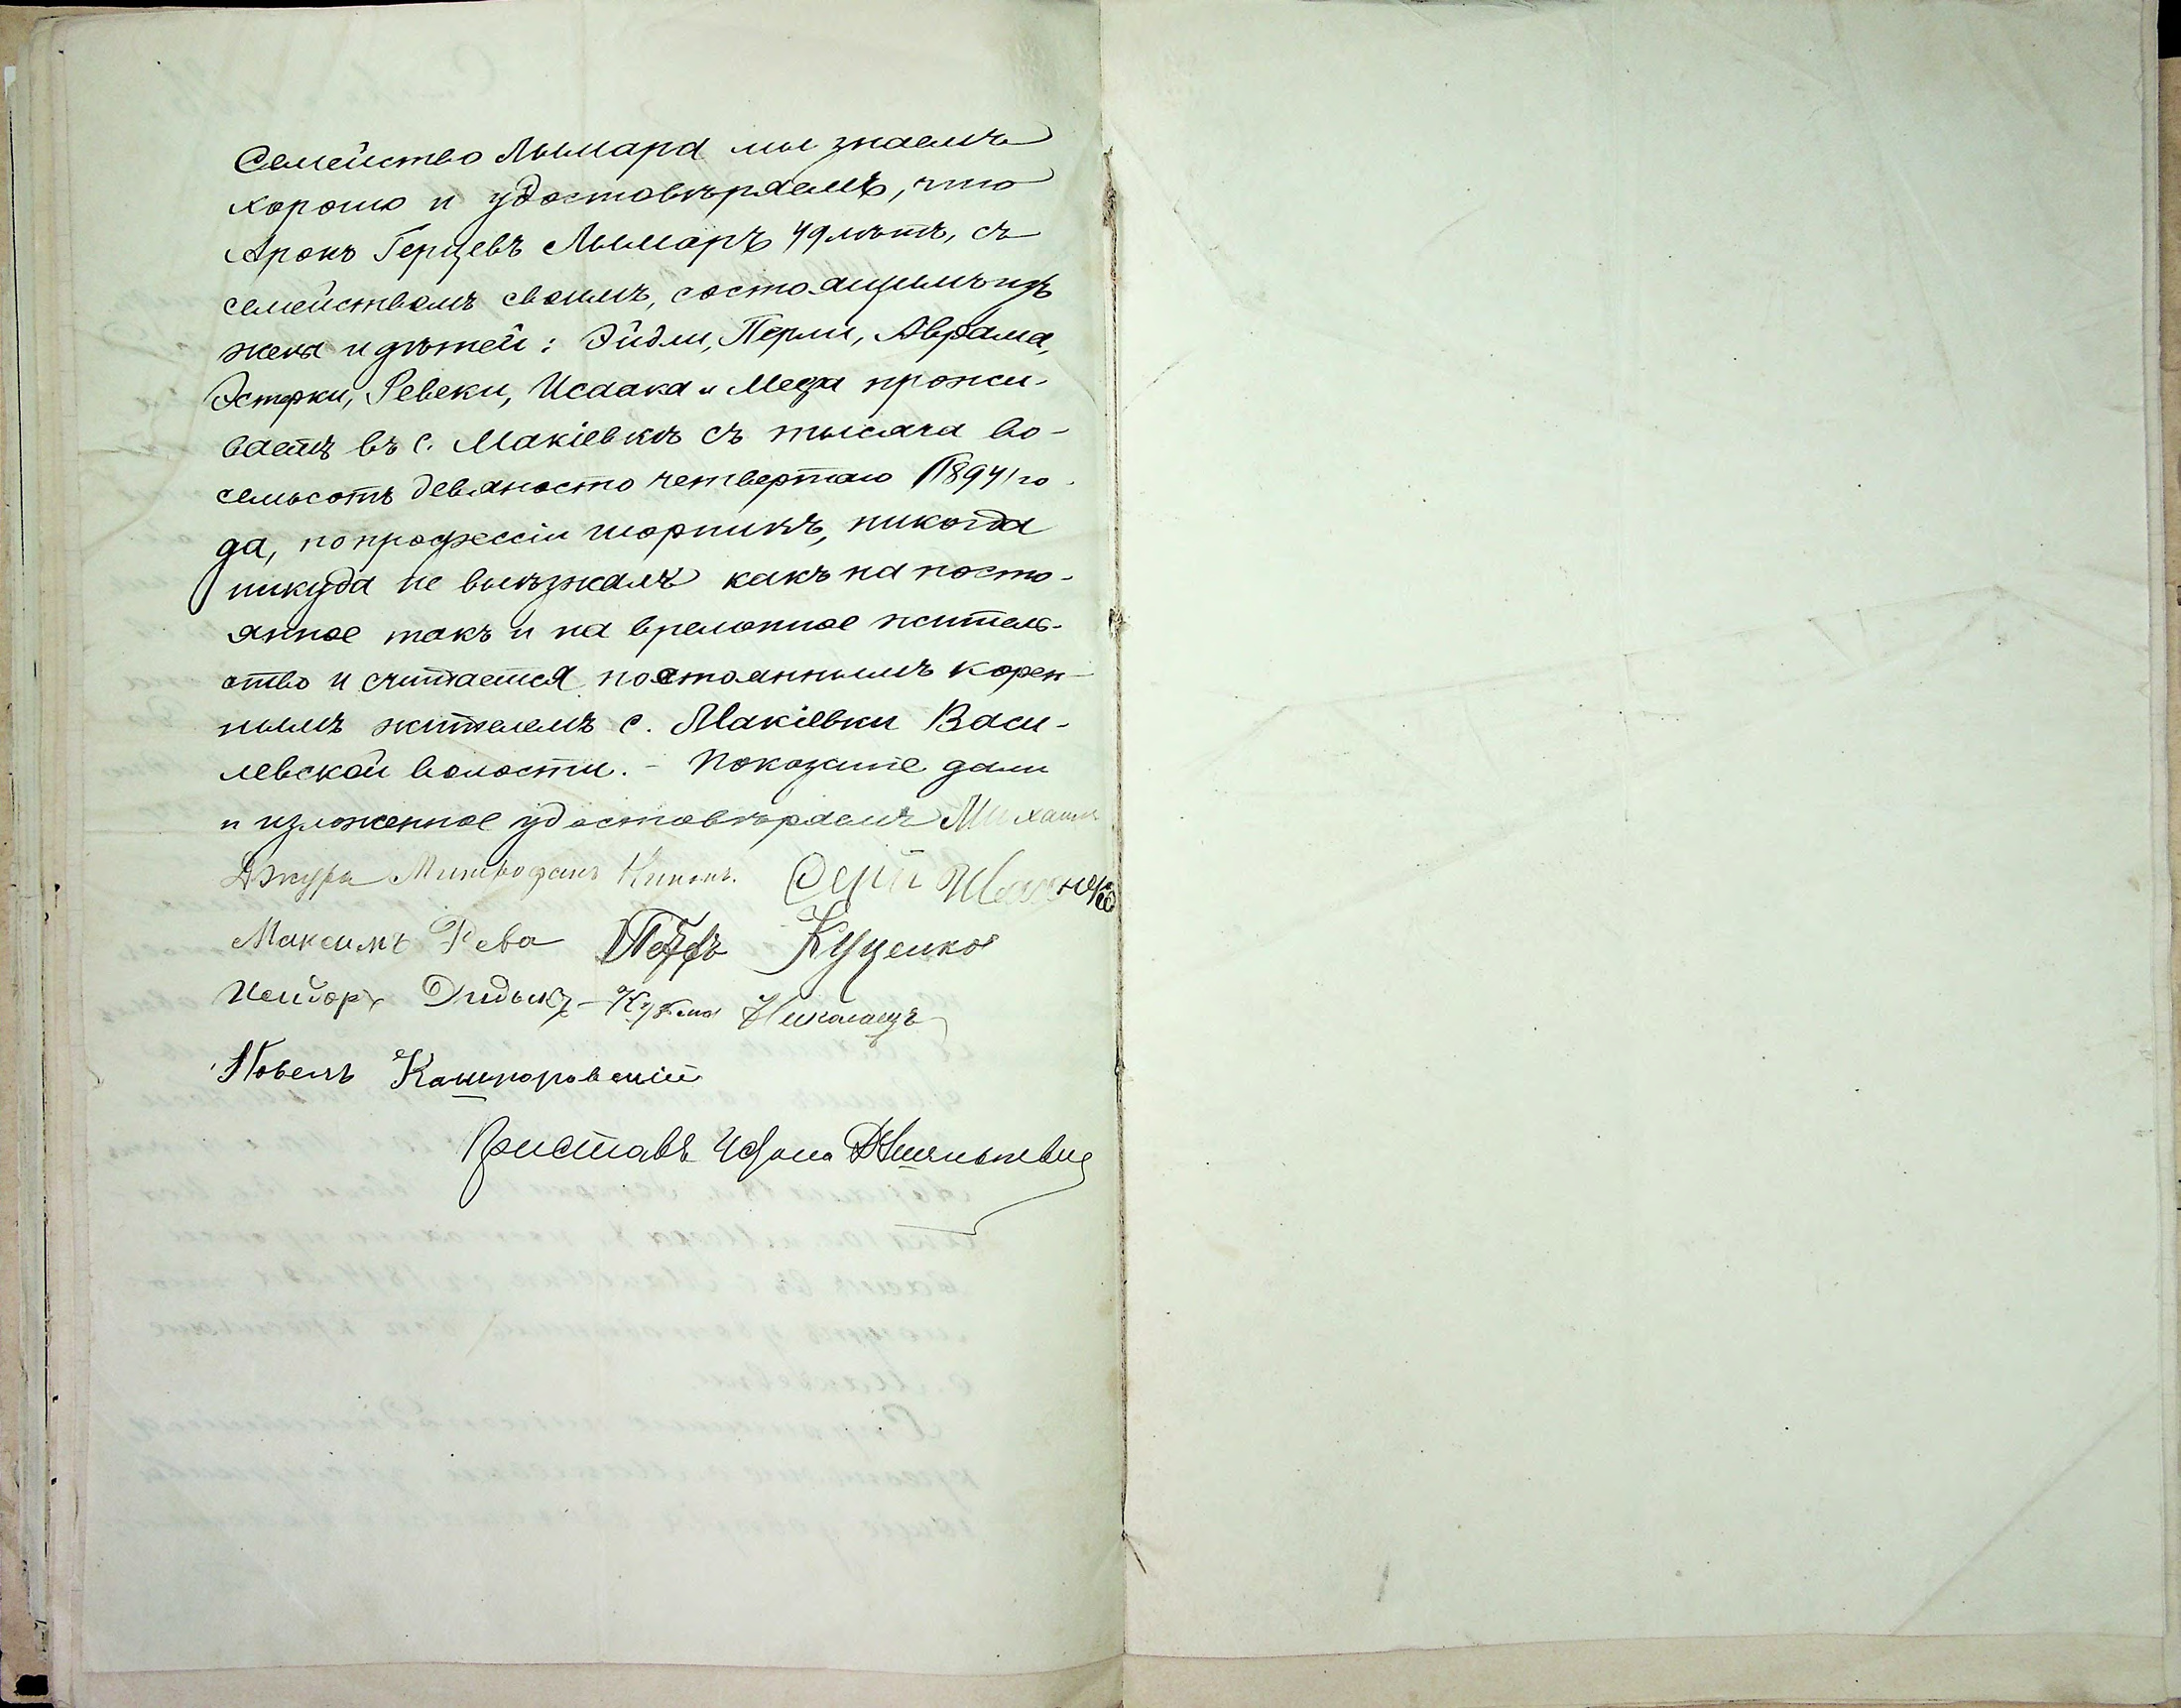 Семейство Лымаря мы знаемъ
хорошо и удостовѣряемъ, что
Аронъ Герцевъ Лымарь 49 лѣтъ, съ
семействомъ своимъ, состоящимъ изъ
жены и дѣтей: Эйдли, Перли, Аврама,
Эстерки, Ревеки, Исаака и Меера прожи-
ваетъ въ с. Макіевкѣ съ тысяча во-
семьсотъ девяносто четвертаго /1894/ го-
да, по профессіи шорникъ, никогда
никуда не выѣзжалъ какъ на посто-
янное такъ и на временное житель-
ство и считается постояннымъ корен-
нымъ жителемъ с. Макіевки Васи-
левской волости. - Показаніе дали
и изложенное удостовѣряемъ Михаилъ
Джура
Максимъ Рева Петръ Куценко
Исидоръ Дидыкъ - Кузьма Николаецъ
Повелъ Кашпоровскій
Приставъ